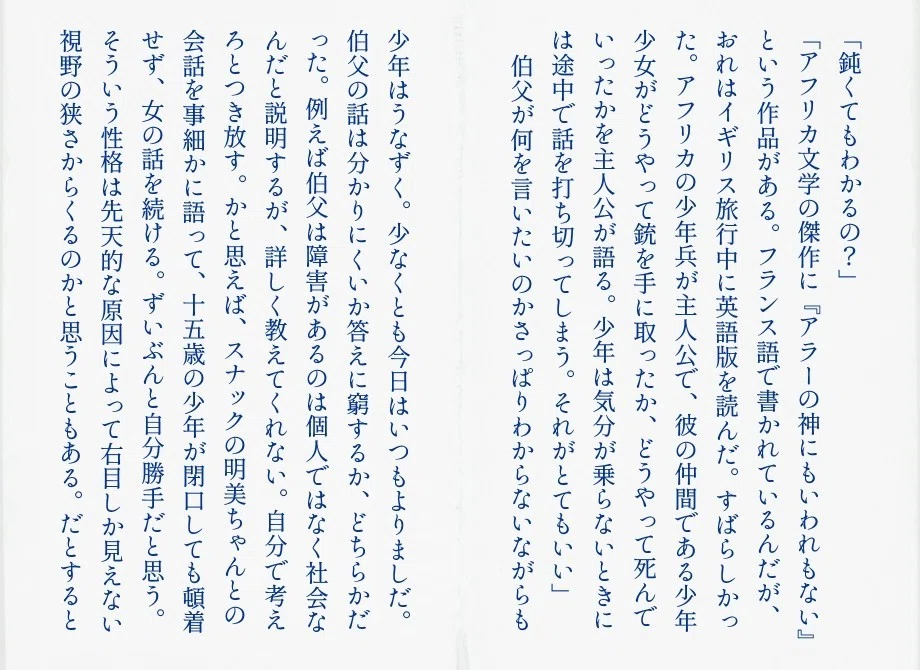 「鈍くてもわかるの？」
「アフリカ文学の傑作に『アラーの神にもいわれもない』
という作品がある。フランス語で書かれているんだが、
おれはイギリス旅行中に英語版を読んだ。すばらしかっ
た。アフリカの少年兵が主人公で、彼の仲間である少年
少女がどうやって銃を手に取ったか、どうやって死んで
いったかを主人公が語る。少年は気分が乗らないときに
は途中で話を打ち切ってしまう。それがとてもいい」
伯父が何を言いたいのかさっぱりわからないながらも
少年はうなずく。少なくとも今日はいつもよりましだ。
伯父の話は分かりにくいか答えに窮するか、どちらかだ
った。例えば伯父は障害があるのは個人ではなく社会な
んだと説明するが、詳しく教えてくれない。自分で考え
ろとつき放す。かと思えば、スナックの明美ちゃんとの
会話を事細かに語って、十五歳の少年が閉口しても頓着
せず、女の話を続ける。ずいぶんと自分勝手だと思う。
そういう性格は先天的な原因によって右目しか見えない
視野の狭さからくるのかと思うこともある。だとすると